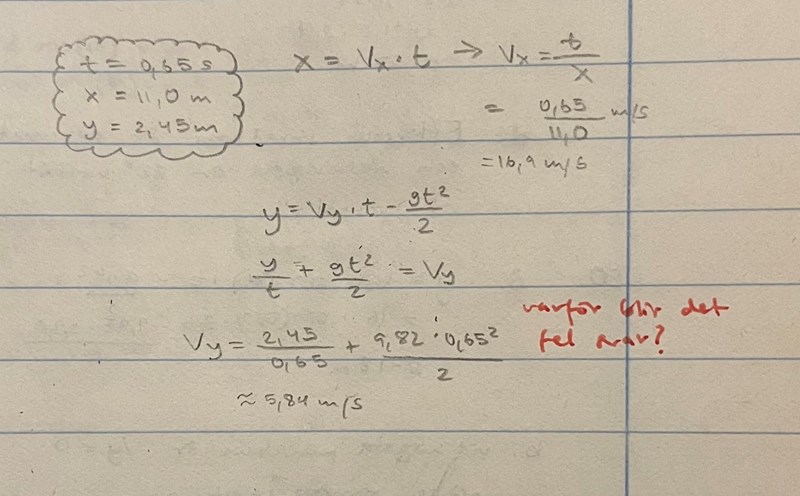 t = 0,65 s
x = 11,0 m
y = 2,45 m
x = Vx · t → Vx = t/x
= 0,65/11,0 m/s
= 16,9 m/s
y = Vy · t - gt²/2
y/t + gt²/2 = Vy
Vy = 2,45/0,65 + 9,82 · 0,65²/2
≈ 5,84 m/s
varför blir det
fel svar?